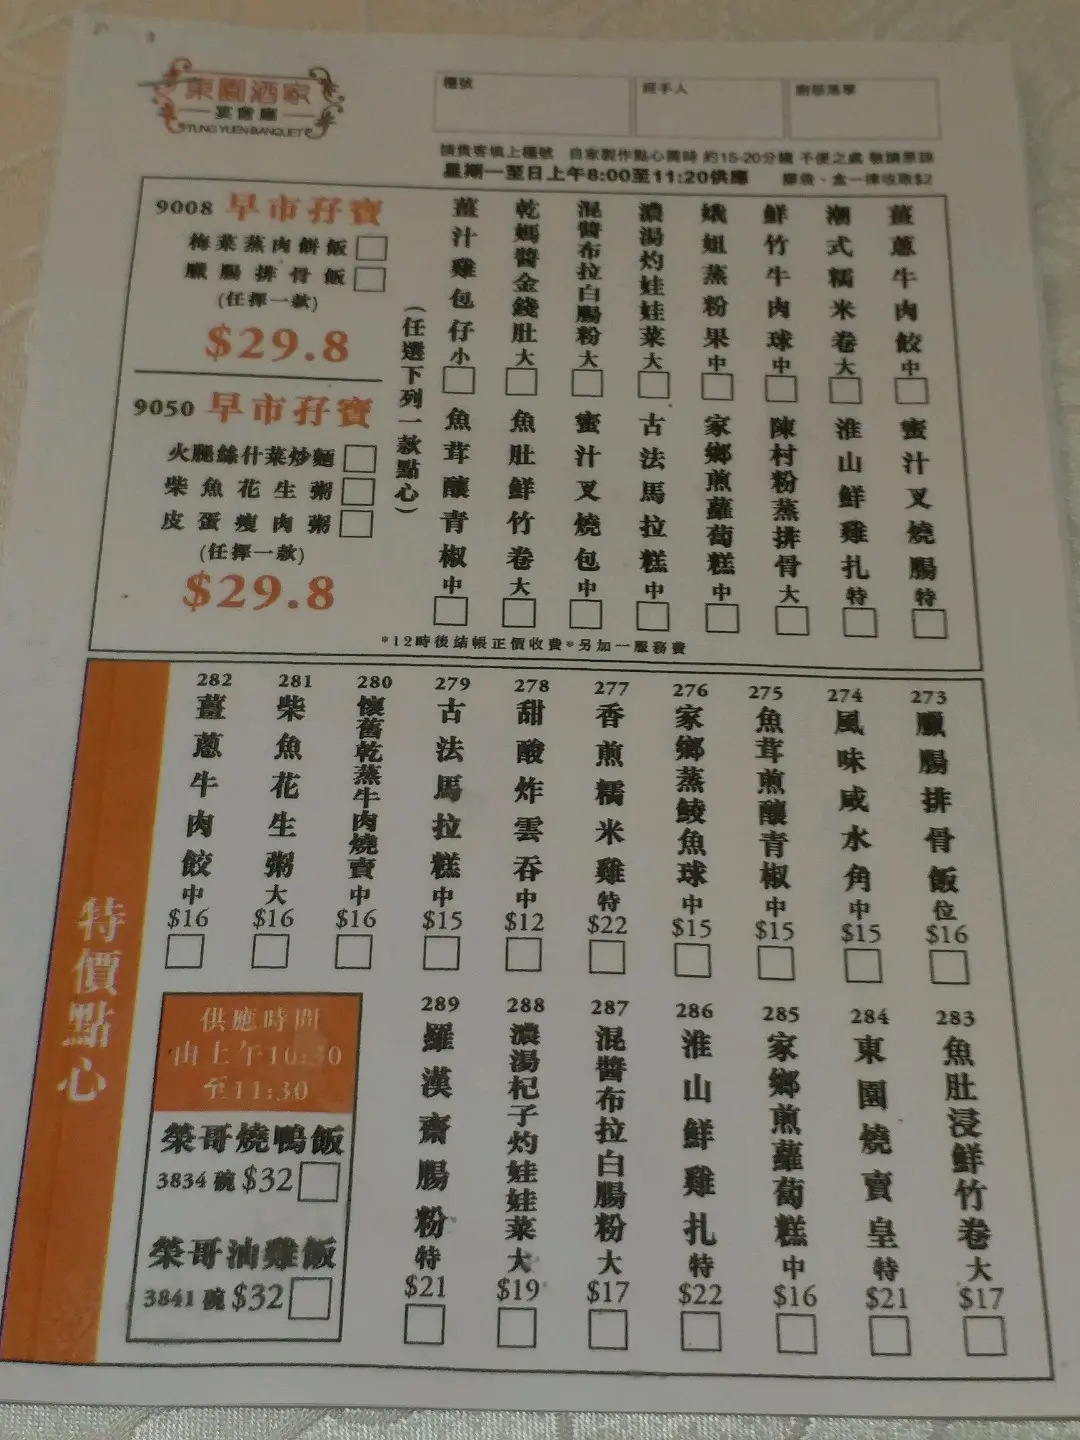 東園酒家
宴會廳
TUNG YUEN BANQUET
檯號
經手人
廚部落單
請貴客填上檯號 自家製作點心需時 約15-20分鐘 不便之處 敬請原諒
星期一至日上午8:00至11:20供應 膠袋、盒一律收取$2
9008 早市孖寶
梅菜蒸肉餅飯
臘腸排骨飯
(任擇一款)
$29.8
9050 早市孖寶
火腿絲什菜炒麵
柴魚花生粥
皮蛋瘦肉粥
(任擇一款)
$29.8
(任選下列一款點心)
薑汁雞包仔 小
乾媽醬金錢肚 大
混醬布拉白腸粉 大
濃湯灼娃娃菜 大
娥姐蒸粉果 中
鮮竹牛肉球 中
潮式糯米卷 大
薑蔥牛肉餃 中
魚茸釀青椒 中
魚肚鮮竹卷 大
蜜汁叉燒包 中
古法馬拉糕 中
家鄉煎蘿蔔糕 中
陳村粉蒸排骨 大
淮山鮮雞扎 特
蜜汁叉燒腸 特
*12時後結帳正價收費*另加一服務費
特價點心
282 薑蔥牛肉餃 中 $16
281 柴魚花生粥 大 $16
280 懷舊乾蒸牛肉燒賣 中 $16
279 古法馬拉糕 中 $15
278 甜酸炸雲吞 中 $12
277 香煎糯米雞 特 $22
276 家鄉蒸鯪魚球 中 $15
275 魚茸煎釀青椒 中 $15
274 風味咸水角 中 $15
273 臘腸排骨飯 位 $16
供應時間
由上午10:30
至11:30
榮哥燒鴨飯
3834 碗 $32
榮哥油雞飯
3841 碗 $32
289 羅漢齋腸粉 特 $21
288 濃湯杞子灼娃娃菜 大 $19
287 混醬布拉白腸粉 大 $17
286 淮山鮮雞扎 特 $22
285 家鄉煎蘿蔔糕 中 $16
284 東園燒賣皇 特 $21
283 魚肚浸鮮竹卷 大 $17